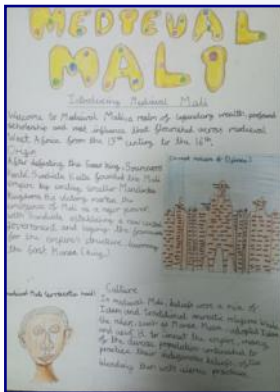 MEDIEVAL
MALI
Introducing Medieval Mali
Welcome to Medieval Mali, a realm of legendary wealth, profound
scholarship and vast influence that flourished across medieval
West Africa from the 13th century to the 16th.
Origin
After defeating the Sosso king, Soumaoro
Kanté, Sundiata Keita founded the Mali
empire by uniting smaller Mandinka
kingdoms. His victory marks the
emergence of Mali as a major power,
with Sundiata establishing a
government and laying the
for the empire's structure
the first Mansa (king).
Great mosque of Djenne
Medieval Mali terracotta head
Culture
In medieval Mali, beliefs were a mix of
Islam and traditional
the rulers, such as Mansa Musa adopted Islam
and used it to the empire, many
of the diverse population continued to
practice their indigenous beliefs, often
blending them with Islamic practices.